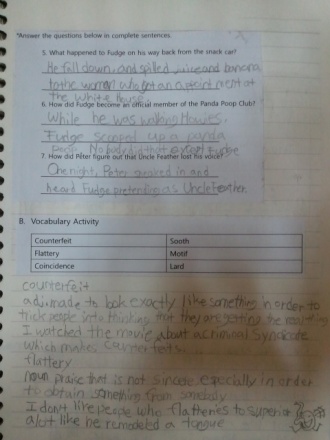 *Answer the questions below in complete sentences.
5. What happened to Fudge on his way back from the snack car?
He fell down, and spilled juice and banana,
to the woman who got an appointment at
the White House.
6. How did Fudge become an official member of the Panda Poop Club?
While he was walking
Fudge scooped up a panda
poop. Nobody did that except Fudge
7. How did Peter figure out that Uncle Feather lost his voice?
One night, Peter sneaked in and
heard Fudge pretending as Uncle Feather.
B. Vocabulary Activity
Counterfeit Sooth
Flattery Motif
Coincidence Lard
counterfeit
adj. made to look exactly like something in order to
trick people into thinking that they are getting the real thing
I watched the movie about a criminal Syndicate
which makes counterfeits.
flattery
noun praise that is not sincere especially in order
to obtain something from somebody
I don't like people who flatteries to superior
alot like he a tongue